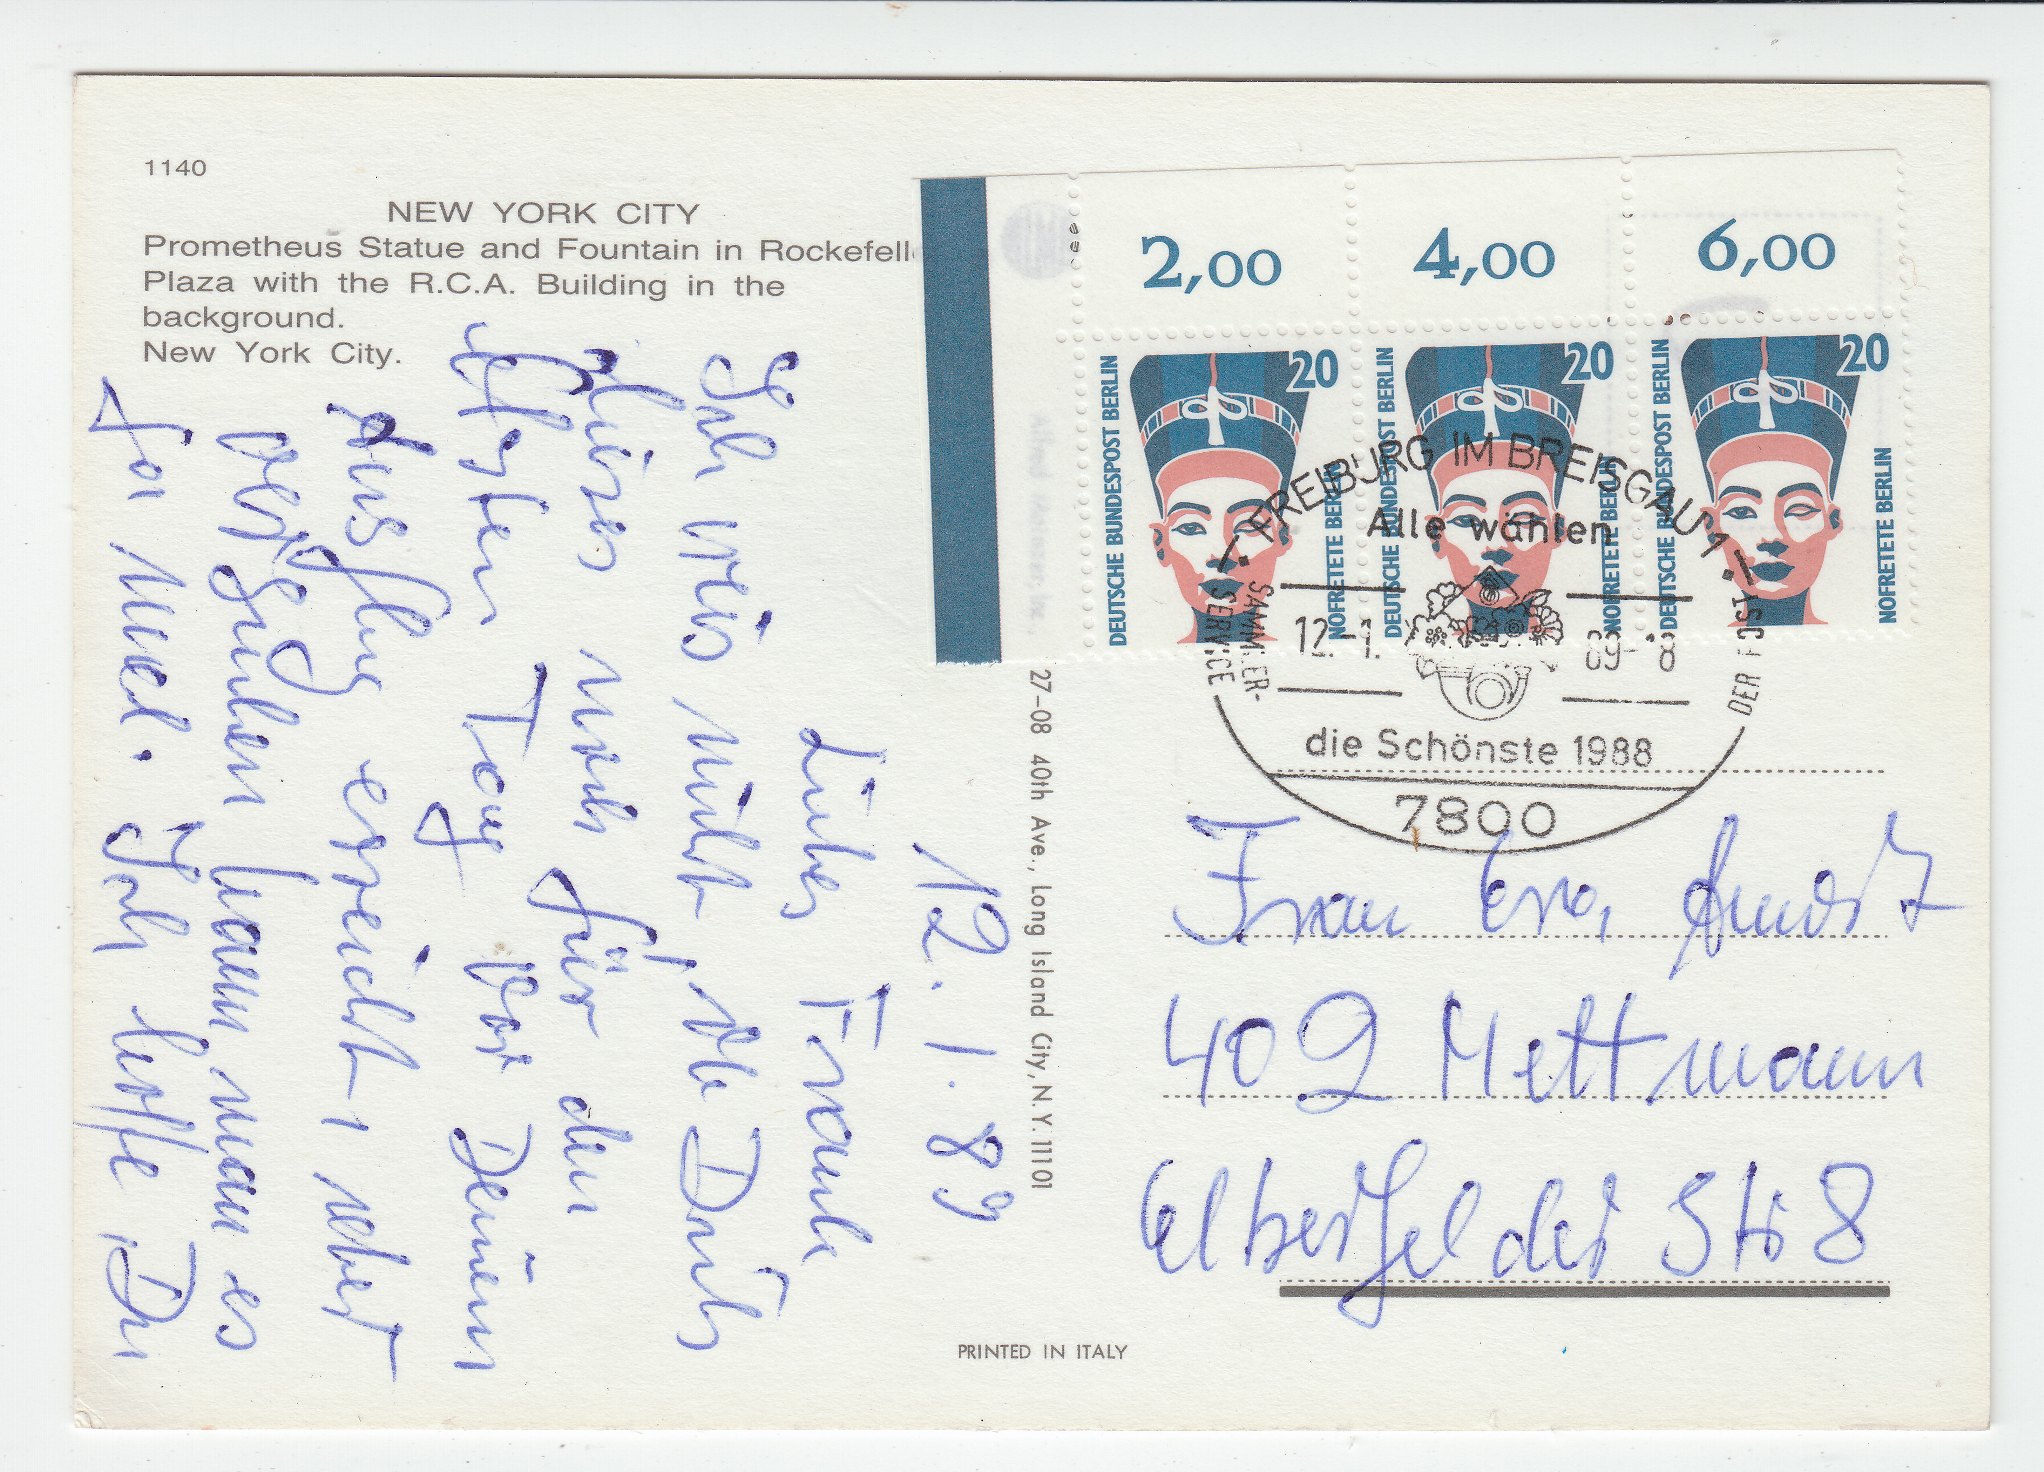 1140
NEW YORK CITY
Prometheus Statue and Fountain in Rockefell
Plaza with the R.C.A. Building in the
background.
New York City.
2,00
4,00
6,00
20
20
20
DEUTSCHE BUNDESPOST BERLIN
NOFRETETE BERLIN
DEUTSCHE BUNDESPOST BERLIN
NOFRETETE BERLIN
DEUTSCHE BUNDESPOST BERLIN
NOFRETETE BERLIN
FREIBURG IM BREISGAU 1
Alle wählen
SAMMLER-
SERVICE
DER POST
12.-1. 89-8
die Schönste 1988
7800
27-08 40th Ave., Long Island City, N.Y. 11101
PRINTED IN ITALY
12.1.89
Liebes
Ich weis nicht, ob Dich
dieses noch für den
ersten Tag vor Deinem
Ausflug erreicht,
kann man es
ja mal. Ich hoffe Du
Frau Eva Arndt
402 Mettmann
Elberfelder Str 8